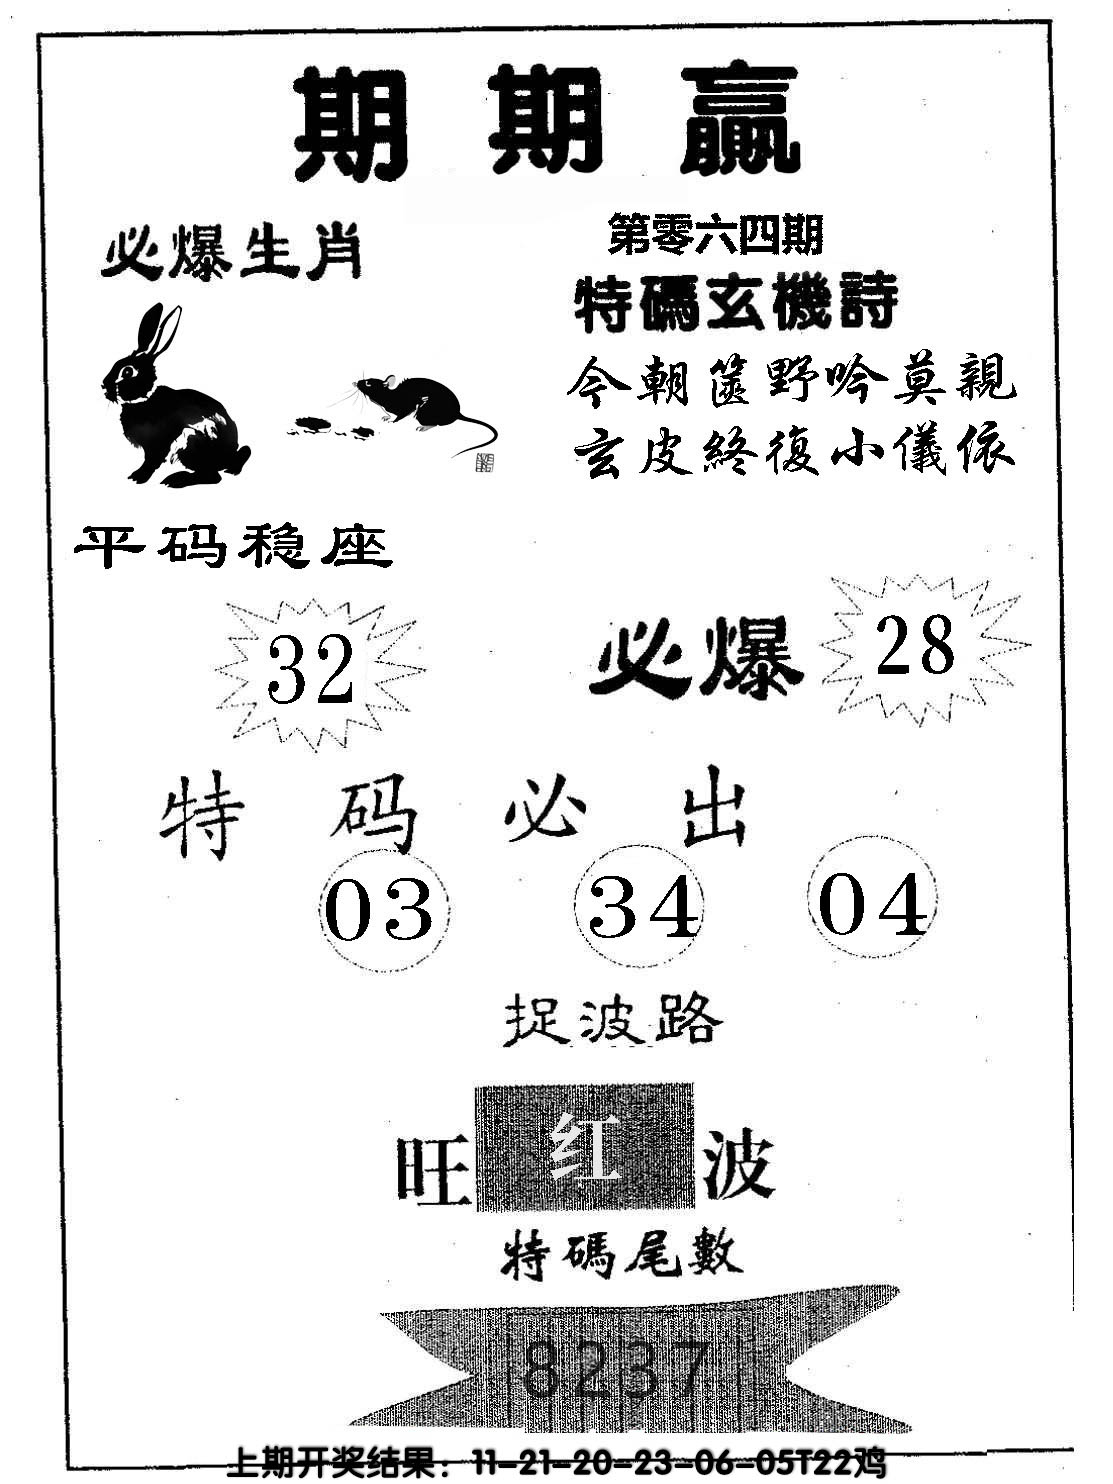 期期贏
必爆生肖
第零六四期
特碼玄機詩
今朝篋野吟莫親
玄皮終復小儀依
平码稳座
32
必爆 28
特码必出
03 34 04
捉波路
旺 红 波
特碼尾數
8237
上期开奖结果：11-21-20-23-06-05T22鸡